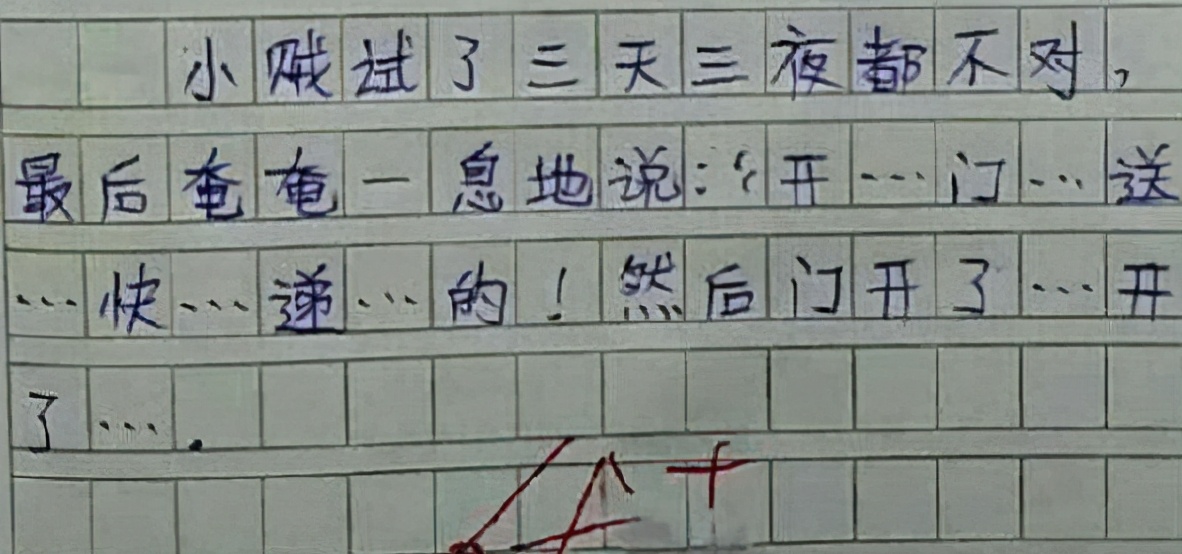 小贼试了三天三夜都不对，
最后奄奄一息地说：“开…门…送
…快…递…的！然后门开了…开
了….
A+